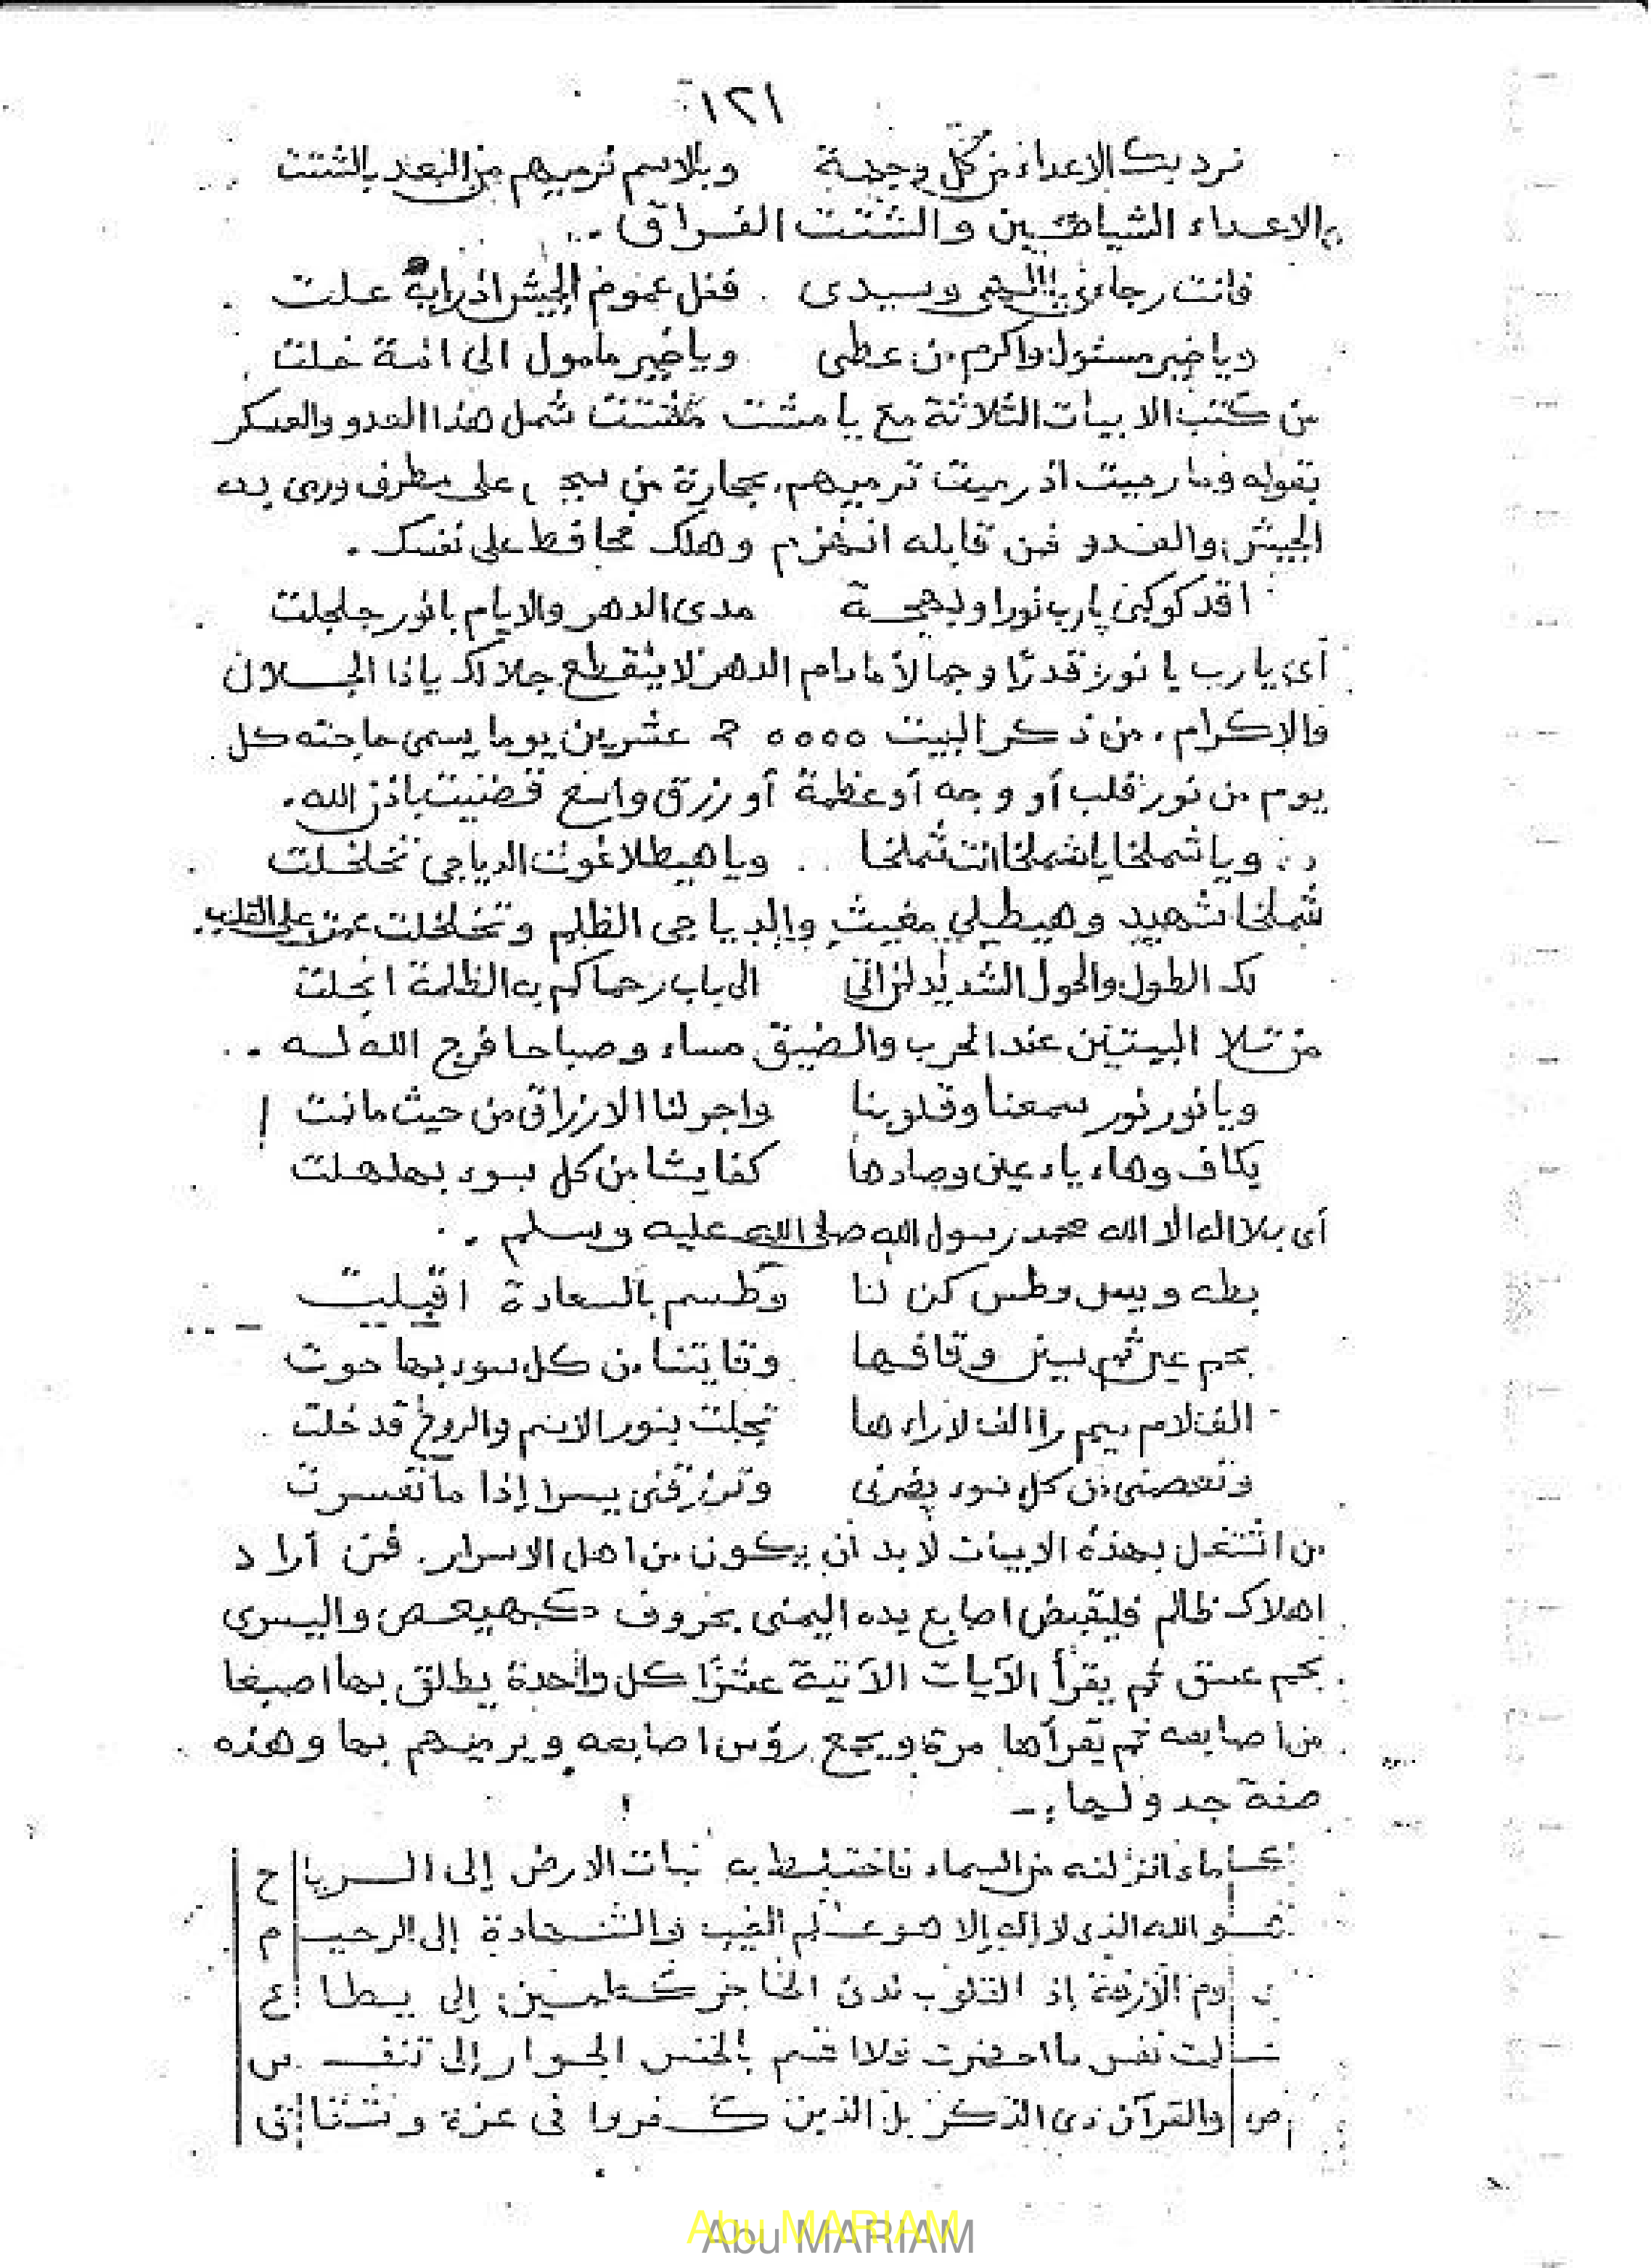 ١٢١
نرد بك الاعداء من كل وجهة وبالاسم نرميهم من البعد بالشتت
والاعداء الشياطين والشتت الفراق .
فانت رجاءى يا الهى وسيدى فغل عموم الجيش اذ رايه علت
ويا خير مسئول واكرم من عطى ويا خير مامول الى امة خلت
من كتب الابيات الثلاثة مع يا مشتت شمل هذا العدو والعسكر
بقوله وما رميت اذ رميت ترميهم بحجارة من سجيل على ورمى به
الجيش والعدو فمن قابله انهزم وهلك محافظ على نفسك .
اقد كوكبى يارب نورا وبهجة مدى الدهر والايام يا نور جلجلت
أى يارب يا نور قدرًا وجمالاً مادام الدهر لا ينقطع جلالك ياذا الجلال
والاكرام . من ذكر البيت عشرين يوما يسمى حاجته كل
يوم من نور قلب أو وجه أو عظمة أو رزق واسع قضيت باذن الله .
ويا شملخا يا شملخا انت شملخا ويا هيطلا غوث الدياجى تخلخلت
شملخا شهيد وهيطلى مغيث والدياجى الظلم وتخلخلت على القلب .
لك الطول والحول الشديد لمن اتى الى باب رحماكم به الظلمة انجلت
من تلا البيتين عند الحرب والضيق مساء وصباحا فرج الله له .
ويا نور نور سمعنا وقلوبنا واجر لنا الارزاق من حيث مانت
بكاف وهاء ياء عين وصادها كفايتنا من كل سوء بهلهلت
أى بلا اله الا الله محمد رسول الله صلى الله عليه وسلم .
بطه ويس وطس كن لنا وطسم بالسعادة اقبلت
بحم عين ثم سين وقافها وقايتنا من كل سوء بها حوت
الف لام ميم را الف لاراءها تجلت بنور الاسم والروح قد خلت
وتعصمنى من كل سوء يضرنى وترزقنى يسرا إذا ما تعسرت
من اشتغل بهذه الابيات لا بد ان يكون من اهل الاسرار . فمن أراد
اهلاك ظالم فليقبض اصابع يده اليمنى بحروف كهيعص واليسرى
بحم عسق ثم يقرأ الآيات الآتية عشرًا كل واحدة يطلق بها اصبعا
من اصابعه ثم يقرأها مرة ويجمع رؤس اصابعه ويرميهم بها وهذه
صفة جدولها :ـ
كـ ماء انزلنه من السماء فاختلط به نبات الارض إلى الريا ح
هـ و الله الذى لا إله إلا هو علم الغيب والشهادة إلى الرحيـ م
يـ وم الازفة إذ القلوب لدى الحناجر كظمين إلى يطا ع
عـ لمت نفس ما احضرت فلا اقسم بالخنس الجوار إلى تنفـ س
ص والقرآن ذى الذكر بل الذين كفروا فى عزة وشقا ق
Abu MARIAM